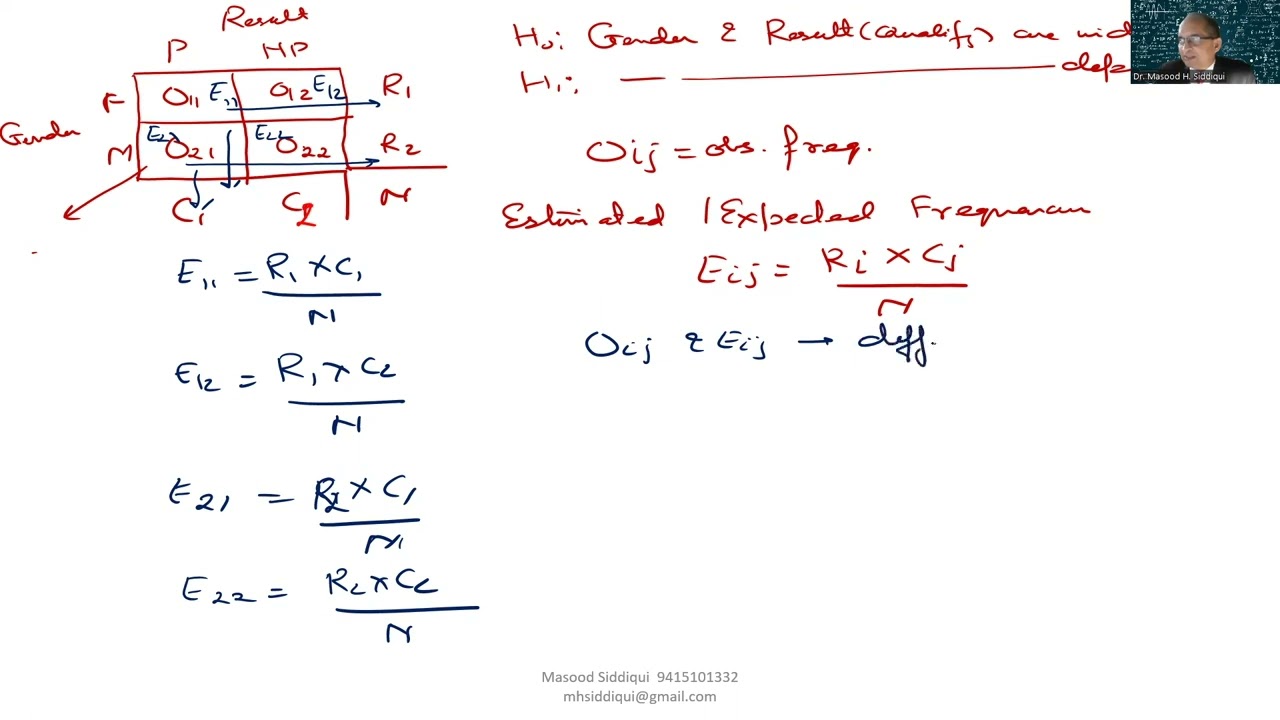 Result
P NP
F O11 E11 O12 E12 R1
Gender
M E21 O21 E22 O22 R2
C1 C2 N
E11 = R1 × C1
N
E12 = R1 × C2
N
E21 = R2 × C1
N
E22 = R2 × C2
N
H0: Gender & Result (Qualify) are
H1: —
Oij = obs. freq.
Estimated / Expected
Eij = Ri × Cj
N
Oij & Eij → diff.
Dr. Masood H. Siddiqui
Masood Siddiqui 9415101332
mhsiddiqui@gmail.com